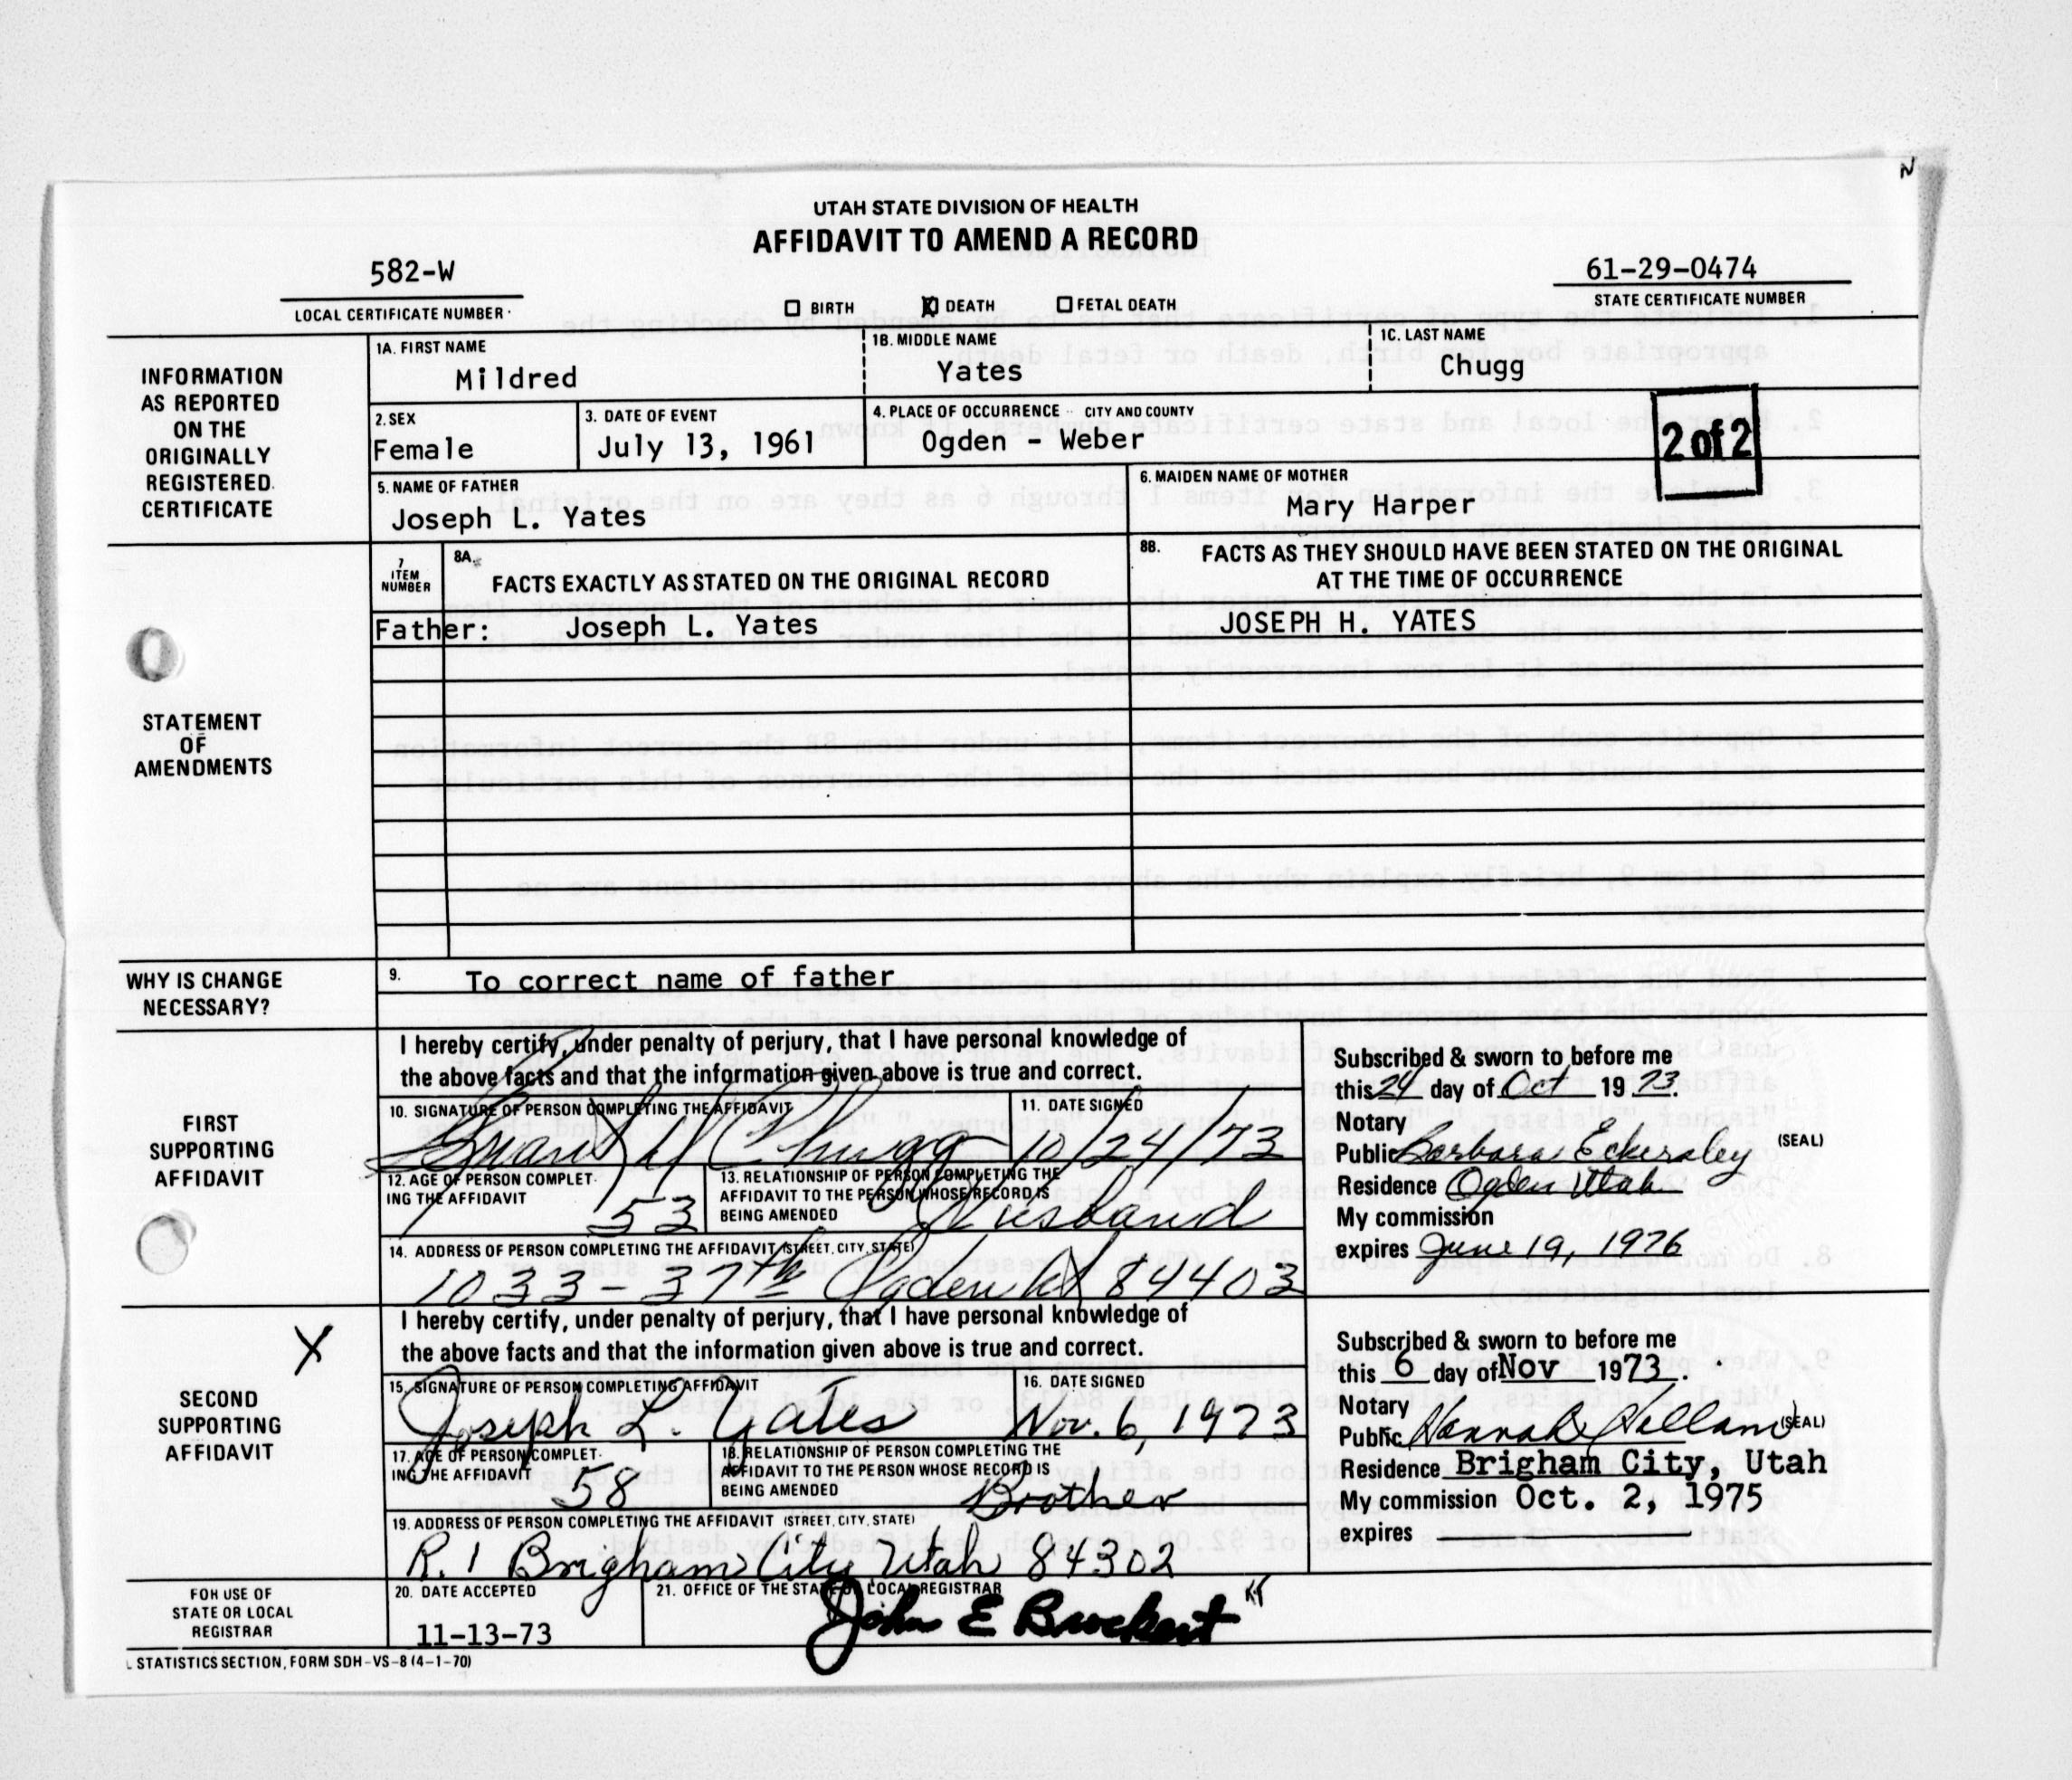 UTAH STATE DIVISION OF HEALTH
AFFIDAVIT TO AMEND A RECORD
582-W
61-29-0474
LOCAL CERTIFICATE NUMBER
☐ BIRTH ☒ DEATH ☐ FETAL DEATH
STATE CERTIFICATE NUMBER
INFORMATION AS REPORTED ON THE ORIGINALLY REGISTERED CERTIFICATE
1A. FIRST NAME
Mildred
1B. MIDDLE NAME
Yates
1C. LAST NAME
Chugg
2. SEX
Female
3. DATE OF EVENT
July 13, 1961
4. PLACE OF OCCURRENCE CITY AND COUNTY
Ogden - Weber
2 of 2
5. NAME OF FATHER
Joseph L. Yates
6. MAIDEN NAME OF MOTHER
Mary Harper
STATEMENT OF AMENDMENTS
7 ITEM NUMBER
8A. FACTS EXACTLY AS STATED ON THE ORIGINAL RECORD
8B. FACTS AS THEY SHOULD HAVE BEEN STATED ON THE ORIGINAL
AT THE TIME OF OCCURRENCE
Father: Joseph L. Yates
JOSEPH H. YATES
WHY IS CHANGE NECESSARY?
9. To correct name of father
FIRST SUPPORTING AFFIDAVIT
I hereby certify, under penalty of perjury, that I have personal knowledge of
the above facts and that the information given above is true and correct.
10. SIGNATURE OF PERSON COMPLETING THE AFFIDAVIT
H Chugg
11. DATE SIGNED
10/24/73
12. AGE OF PERSON COMPLETING THE AFFIDAVIT
53
13. RELATIONSHIP OF PERSON COMPLETING THE
AFFIDAVIT TO THE PERSON WHOSE RECORD IS
BEING AMENDED
Husband
14. ADDRESS OF PERSON COMPLETING THE AFFIDAVIT (STREET, CITY, STATE)
1033 - 37th Ogden Ut 84403
Subscribed & sworn to before me
this 24 day of Oct 19 73.
Notary
Public Barbara Eckersley (SEAL)
Residence Ogden Utah
My commission
expires June 19, 1976
X
SECOND SUPPORTING AFFIDAVIT
I hereby certify, under penalty of perjury, that I have personal knowledge of
the above facts and that the information given above is true and correct.
15. SIGNATURE OF PERSON COMPLETING AFFIDAVIT
Joseph L. Yates
16. DATE SIGNED
Nov. 6, 1973
17. AGE OF PERSON COMPLETING THE AFFIDAVIT
58
18. RELATIONSHIP OF PERSON COMPLETING THE
AFFIDAVIT TO THE PERSON WHOSE RECORD IS
BEING AMENDED
Brother
19. ADDRESS OF PERSON COMPLETING THE AFFIDAVIT (STREET, CITY, STATE)
R. 1 Brigham City Utah 84302
Subscribed & sworn to before me
this 6 day of Nov 1973.
Notary
Public Hannah (SEAL)
Residence Brigham City, Utah
My commission Oct. 2, 1975
expires
FOR USE OF STATE OR LOCAL REGISTRAR
20. DATE ACCEPTED
11-13-73
21. OFFICE OF THE STATE OR LOCAL REGISTRAR
John E Brockert
STATISTICS SECTION, FORM SDH-VS-8 (4-1-70)